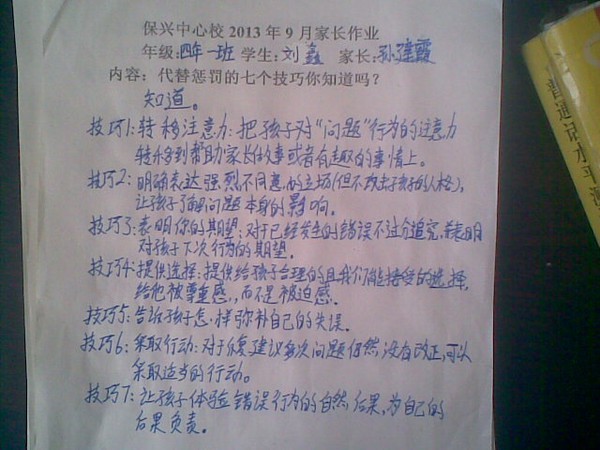 保兴中心校 2013 年 9 月家长作业
年级:四年一班 学生:刘鑫 家长:孙建霞
内容：代替惩罚的七个技巧你知道吗？
知道。
技巧1:转移注意力:把孩子对"问题"行为的注意力
转移到帮助家长做事或者有趣的事情上。
技巧2:明确表达强烈不同意的立场(但不攻击孩子的人格),
让孩子了解问题本身的影响。
技巧3:表明你的期望:对于已经发生的错误不过分追究,并表明
对孩子下次行为的期望。
技巧4:提供选择:提供给孩子合理的且我们能接受的选择,
给他被尊重感,,而不是被迫感。
技巧5:告诉孩子怎样弥补自己的失误。
技巧6:采取行动:对于反复建议多次问题仍然没有改正,可以
采取适当的行动。
技巧7:让孩子体验错误行为的自然后果,为自己的
后果负责。
普通话水平测